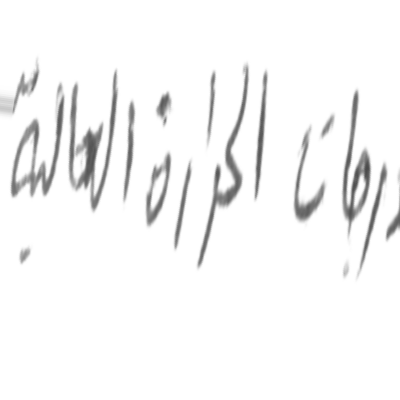 درجات الحرارة العالية